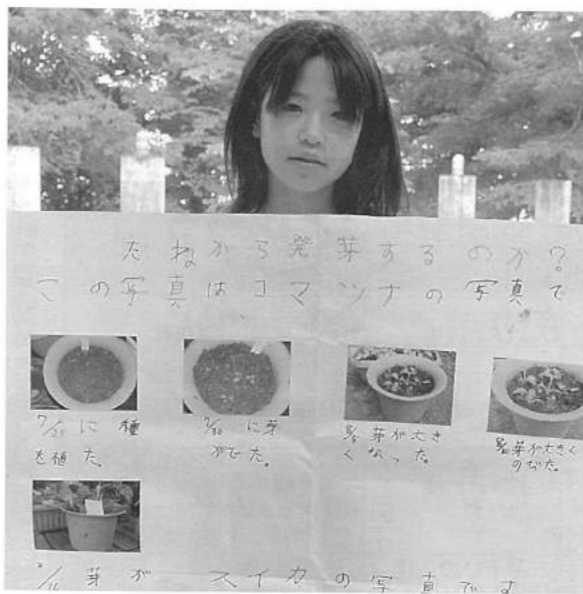 たねから発芽するのか?
この写真はコマツナの写真で
7/27 に 種
を植た。
7/30 に芽
がでた。
芽が大き
くなった。
芽が大きく
のびた。
芽が スイカの写真です